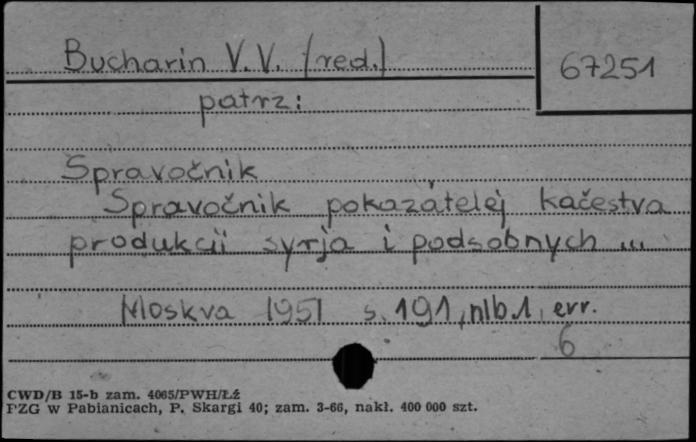 Bucharin V.V. (red.)
67251
patrz:
Spravočnik
Spravočnik pokazátelej kačestva
produkcii syrja i podsobnych ...
Moskva 1951 s. 191, nlb.1, err.
6
CWD/B 15-b zam. 4065/PWH/Łź
PZG w Pabianicach, P. Skargi 40; zam. 3-66, nakł. 400 000 szt.